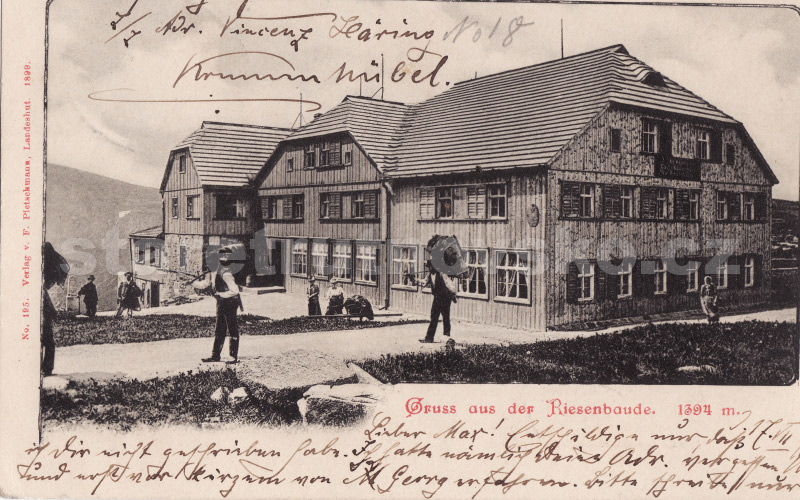 p. Adr. Vincenz Häring No 18
Krummhübel.
No. 195. Verlag v. F. Pietschmann, Landeshut. 1899.
Gruss aus der Riesenbaude. 1394 m.
Lieber Max! Entschuldigen nur daß
ich Dir nicht geschrieben habe. Ich hatte nämlich Deine Adr. vergessen
und erst vor kurzem von M. Georg erfahren. Bitte schreibe nur